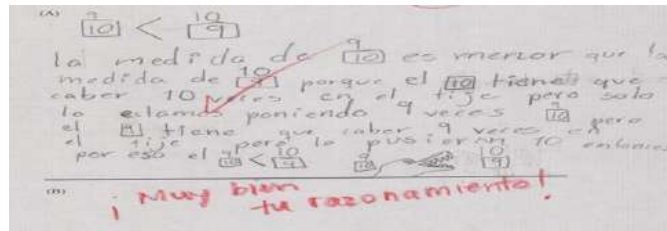 (A) 9/10 < 10/9
la medida de 9/10 es menor que la
medida de 10/9 porque el 10 tiene que
caber 10 veces en el tije pero solo
lo estamos poniendo 9 veces 9/10 pero
el 9 tiene que caber 9 veces en
el tije pero lo pusieron 10 entonces
por eso el 9/10 < 10/9 9/10 10/9
(B)
¡Muy bien
tu razonamiento!